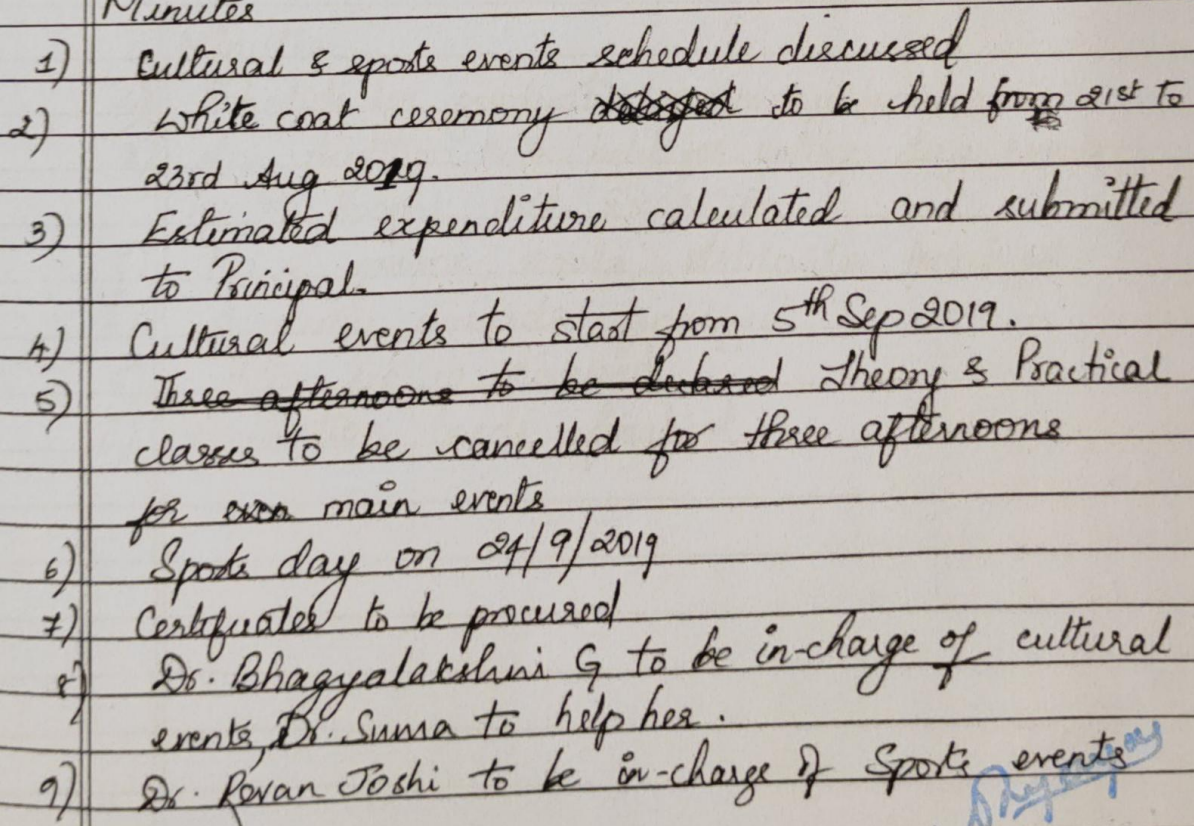 Minutes
1) Cultural & sports events schedule discussed
2) White coat ceremony to be held from 21st to
23rd Aug 2019.
3) Estimated expenditure calculated and submitted
to Principal.
4) Cultural events to start from 5th Sep 2019.
5) Three afternoons to be declared Theory & Practical
classes to be cancelled for three afternoons
for even main events
6) Sports day on 24/9/2019
7) Certificates to be procured
8) Dr. Bhagyalakshmi G to be in-charge of cultural
events, Dr. Suma to help her.
9) Dr. Pavan Joshi to be in-charge of Sports events